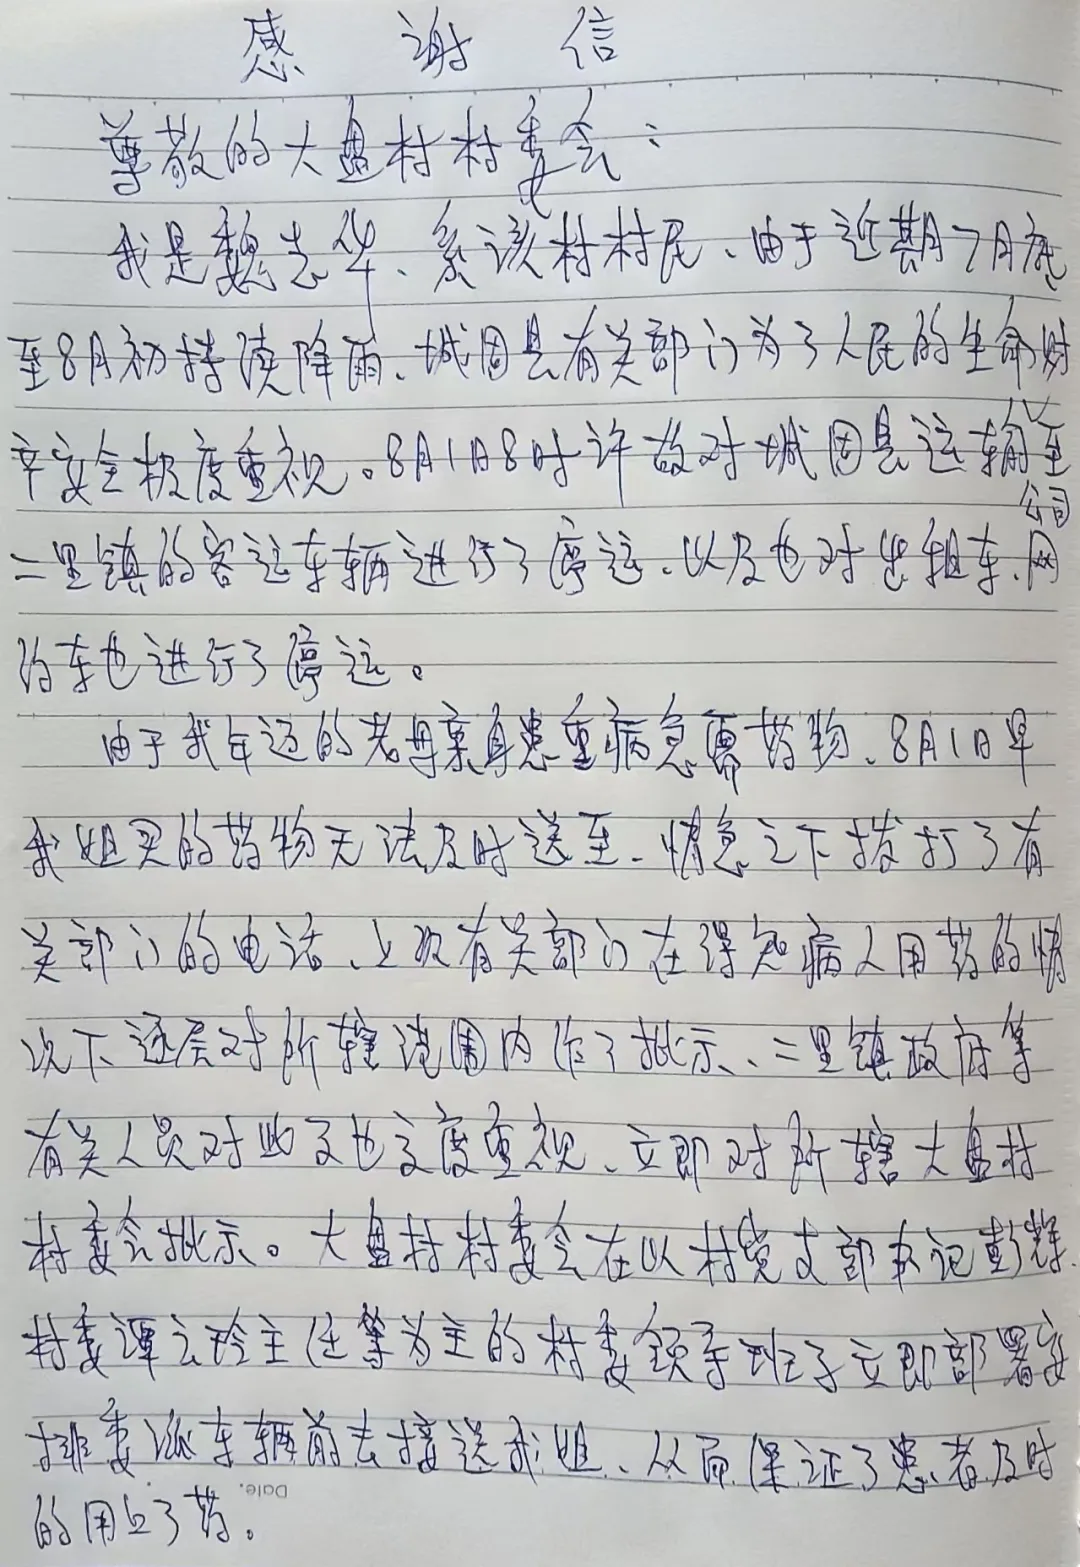 感谢信
尊敬的大盘村村委会：
我是魏志华、系该村村民、由于近期7月底
至8月初持续降雨、城固县有关部门为了人民的生命财
产安全极度重视。8月1日8时许故对城固县运输公司至
二里镇的客运车辆进行了停运、以及也对出租车、网
约车也进行了停运。
由于我年迈的老母亲身患重病急需药物、8月1日早
我姐买的药物无法及时送至、情急之下拨打了有
关部门的电话、上级有关部门在得知病人用药的情
况下逐层对所辖范围内作了批示、二里镇政府等
有关人员对此文也高度重视、立即对所辖大盘村
村委会批示。大盘村村委会在以村党支部书记彭辉、
村委谭云玲主任等为主的村委领导班子立即部署安
排委派车辆前去接送我姐、从而保证了患者及时
的用上了药。
Date.